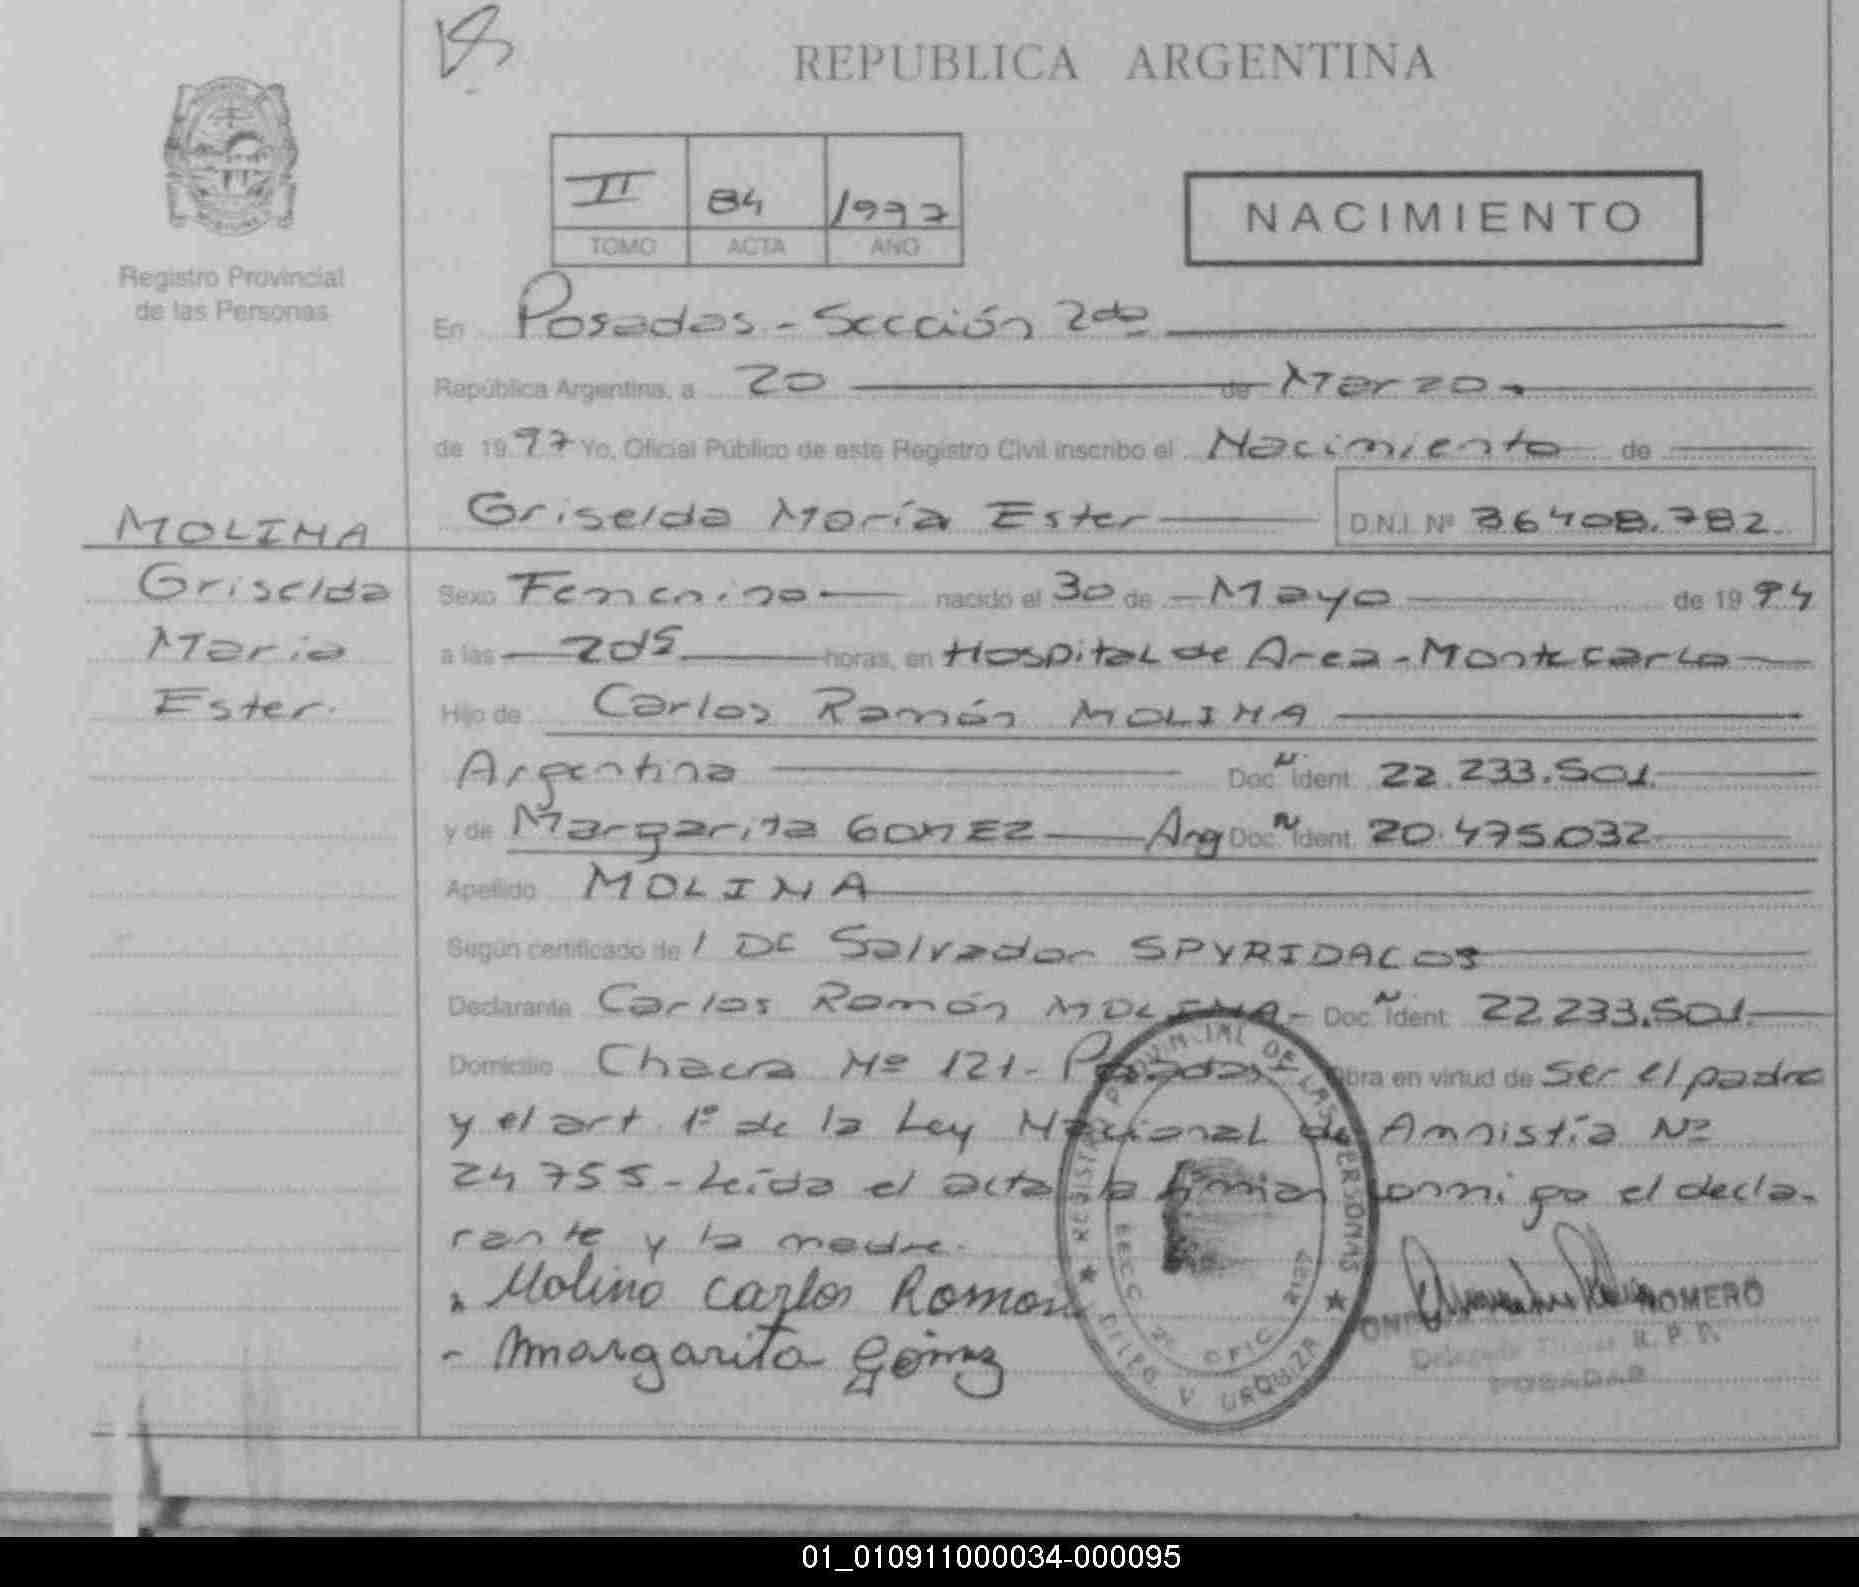 REPUBLICA ARGENTINA
II 84 1997
TOMO ACTA AÑO
NACIMIENTO
Registro Provincial
de las Personas
En Posadas - Sección 2da
República Argentina, a 20 de Marzo.
de 1997 Yo, Oficial Público de este Registro Civil inscribo el Nacimiento de
Griselda María Ester D.N.I. Nº 36408.782.
MOLINA
Griselda
María
Ester.
Sexo Femenino nacido el 30 de Mayo de 1994
a las horas, en Hospital de Area - Montecarlo
Hijo de Carlos Ramón MOLINA
Argentina Doc. Ident. 22.233.501.
y de Margarita GOMEZ Arg Doc. Ident. 20.475.032
Apellido MOLINA
Según certificado de Salvador SPYRIDACOS
Declarante Carlos Ramón MOLINA - Doc. Ident. 22.233.501.
Domicilio Chacra Nº 121 - Posadas Obra en virtud de ser el padre
y el art. 1º de la Ley Nacional de Amnistía Nº
24755 - Leída el acta la firman conmigo el decla-
rante y la madre.
Molino Carlos Romon
- Margarita Gómez
REGISTRO PROVINCIAL DE LAS PERSONAS
SECC 2º OFIC
URQUIZA
ROMERO
R. P. P.
POSADAS
01_010911000034-000095